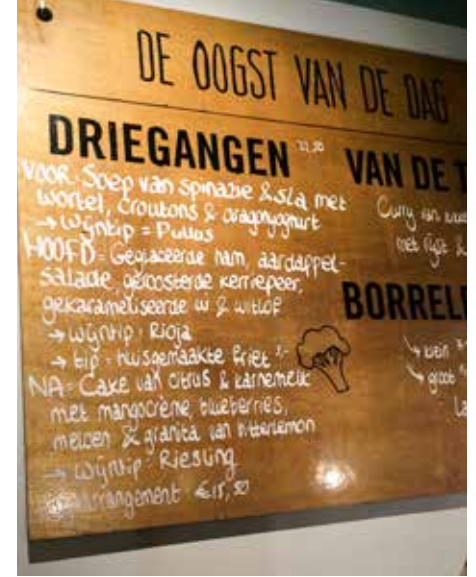 DE OOGST VAN DE DAG
DRIEGANGEN 22,50
VOOR: Soep van spinazie & sla met
wortel, croutons & dragonyoghurt
→ wijntip = Pullus
HOOFD = Geglaceerde ham, aardappel-
salade, geroosterde kerriepeer,
gekarameliseerde ui & witlof
→ wijntip: Rioja
→ tip = huisgemaakte friet 3,-
NA = Cake van citrus & karnemelk
met mangocrème, blueberries,
meloen & granita van bitterlemon
→ wijntip: Riesling
wijnarrangement €15,50
VAN DE T
Curry van
met rijst &
BORREL
→ klein
→ groot